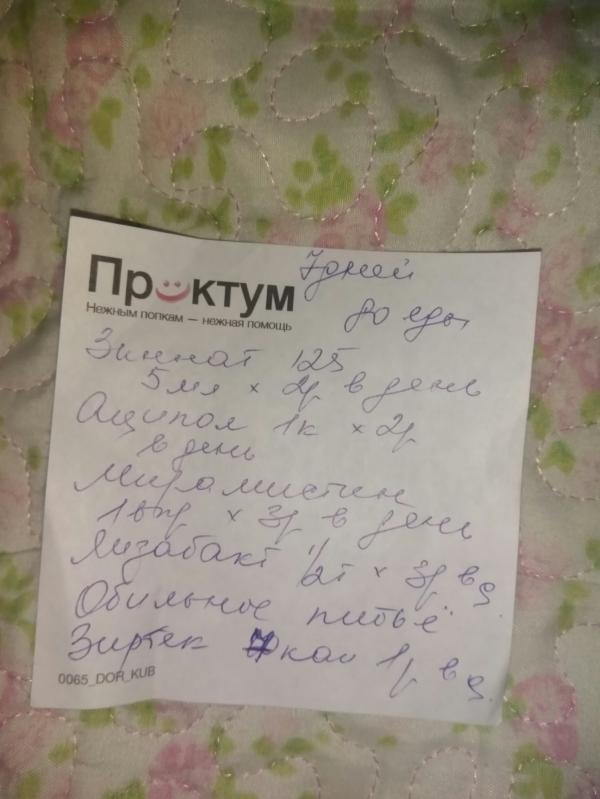 Проктум
Нежным попкам — нежная помощь
7 дней
до еды
Зиннат 125
5 мл × 2р в день
Аципол 1к × 2р
в день
Мирамистин
1 впр × 3р в день
Лизабакт 1/2т × 3р в д.
Обильное питьё
Зиртек кап 1р в д.
0065_DOR_KUB